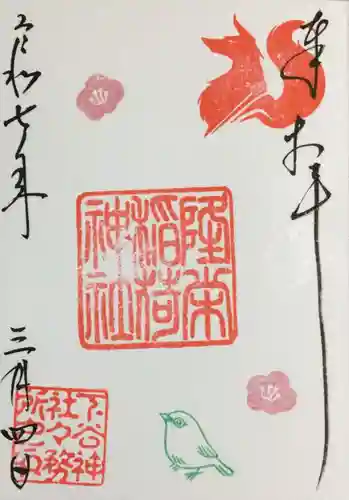 奉拝
隆栄
稲荷
神社
令和七年 三月四日
下谷神
社々務
所之印